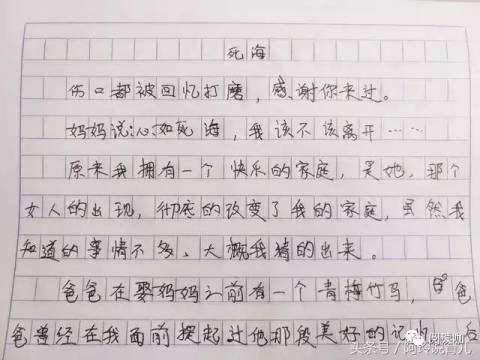 死海
伤口都被回忆打磨，感谢你来过。
妈妈说:心如死海，我该不该离开……
原来我拥有一个快乐的家庭，是她，那个
女人的出现，彻底的改变了我的家庭，虽然我
知道的事情不多，大概我猜的出来。
爸爸在娶妈妈之前有一个青梅竹马，爸
爸曾经在我面前提起过他那段美好的记忆，后